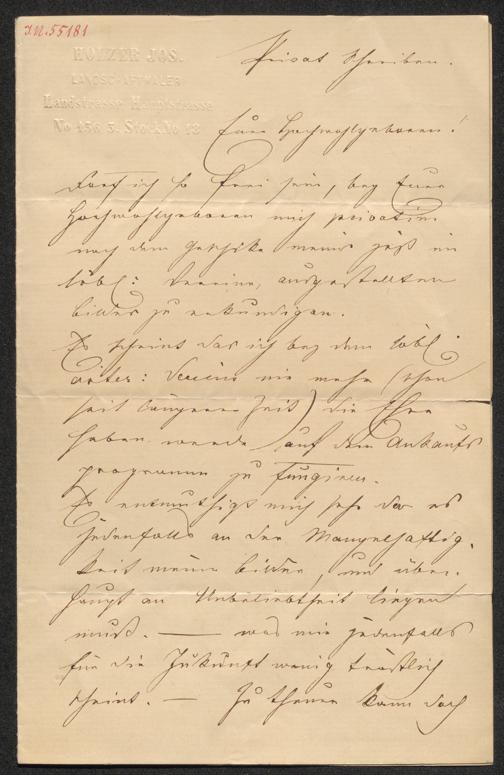 I.N. 55181
HOLZER JOS.
LANDSCHAFTMALER
Landstrasse Hauptstrasse
No 136 5. Stock No 13
Privat Schreiben.
Euer Hochwohlgeboren!
Darf ich so frei sein, bey Euer
Hochwohlgeboren mich privatim
nach dem Geschike meines jetzt im
löbl: Vereine, ausgestellten
bildes zu erkundigen.
Es scheint das ich bey dem löbl.
öster: Verein nie mehr (schon
seit längerer Zeit) die Ehre
haben werde auf dem Ankaufs
programm zu fungiren.
Es entmuthigt mich sehr da es
jedenfalls an der Mangelhaftig-
keit meiner bilder, und über-
haupt an Unbeliebtheit liegen
muß. — was mir jedenfalls
für die Zukunft wenig tröstlich
scheint. — Zu theuer kann doch